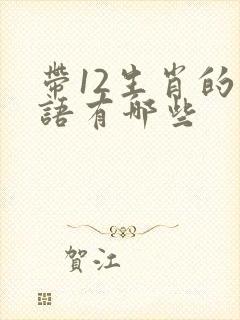 帶12生肖的
語有哪些
賀江